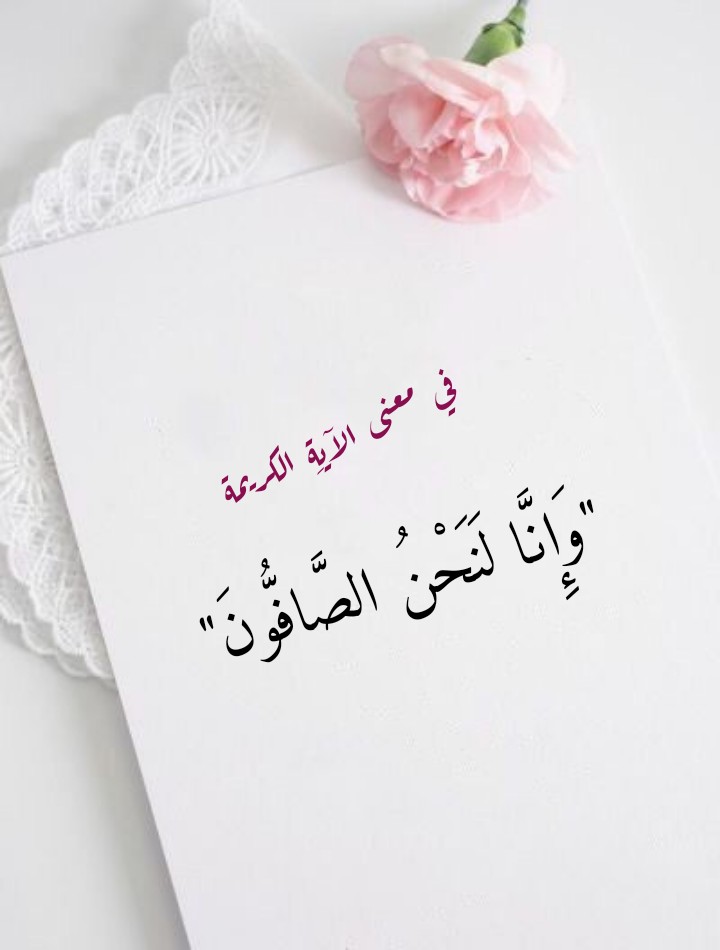 في معنى الآيِة الكريمة
"وَإِنَّا لَنَحْنُ الصَّافُّونَ"